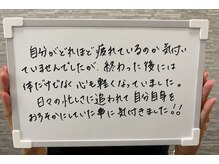 自分がどれほど疲れているのか気付い
ていませんでしたが、終わった後には
体だけじなく心も軽くなっていました。
日々の忙しさに追われて自分自身を
おろそかにしていた事に気付きました!!